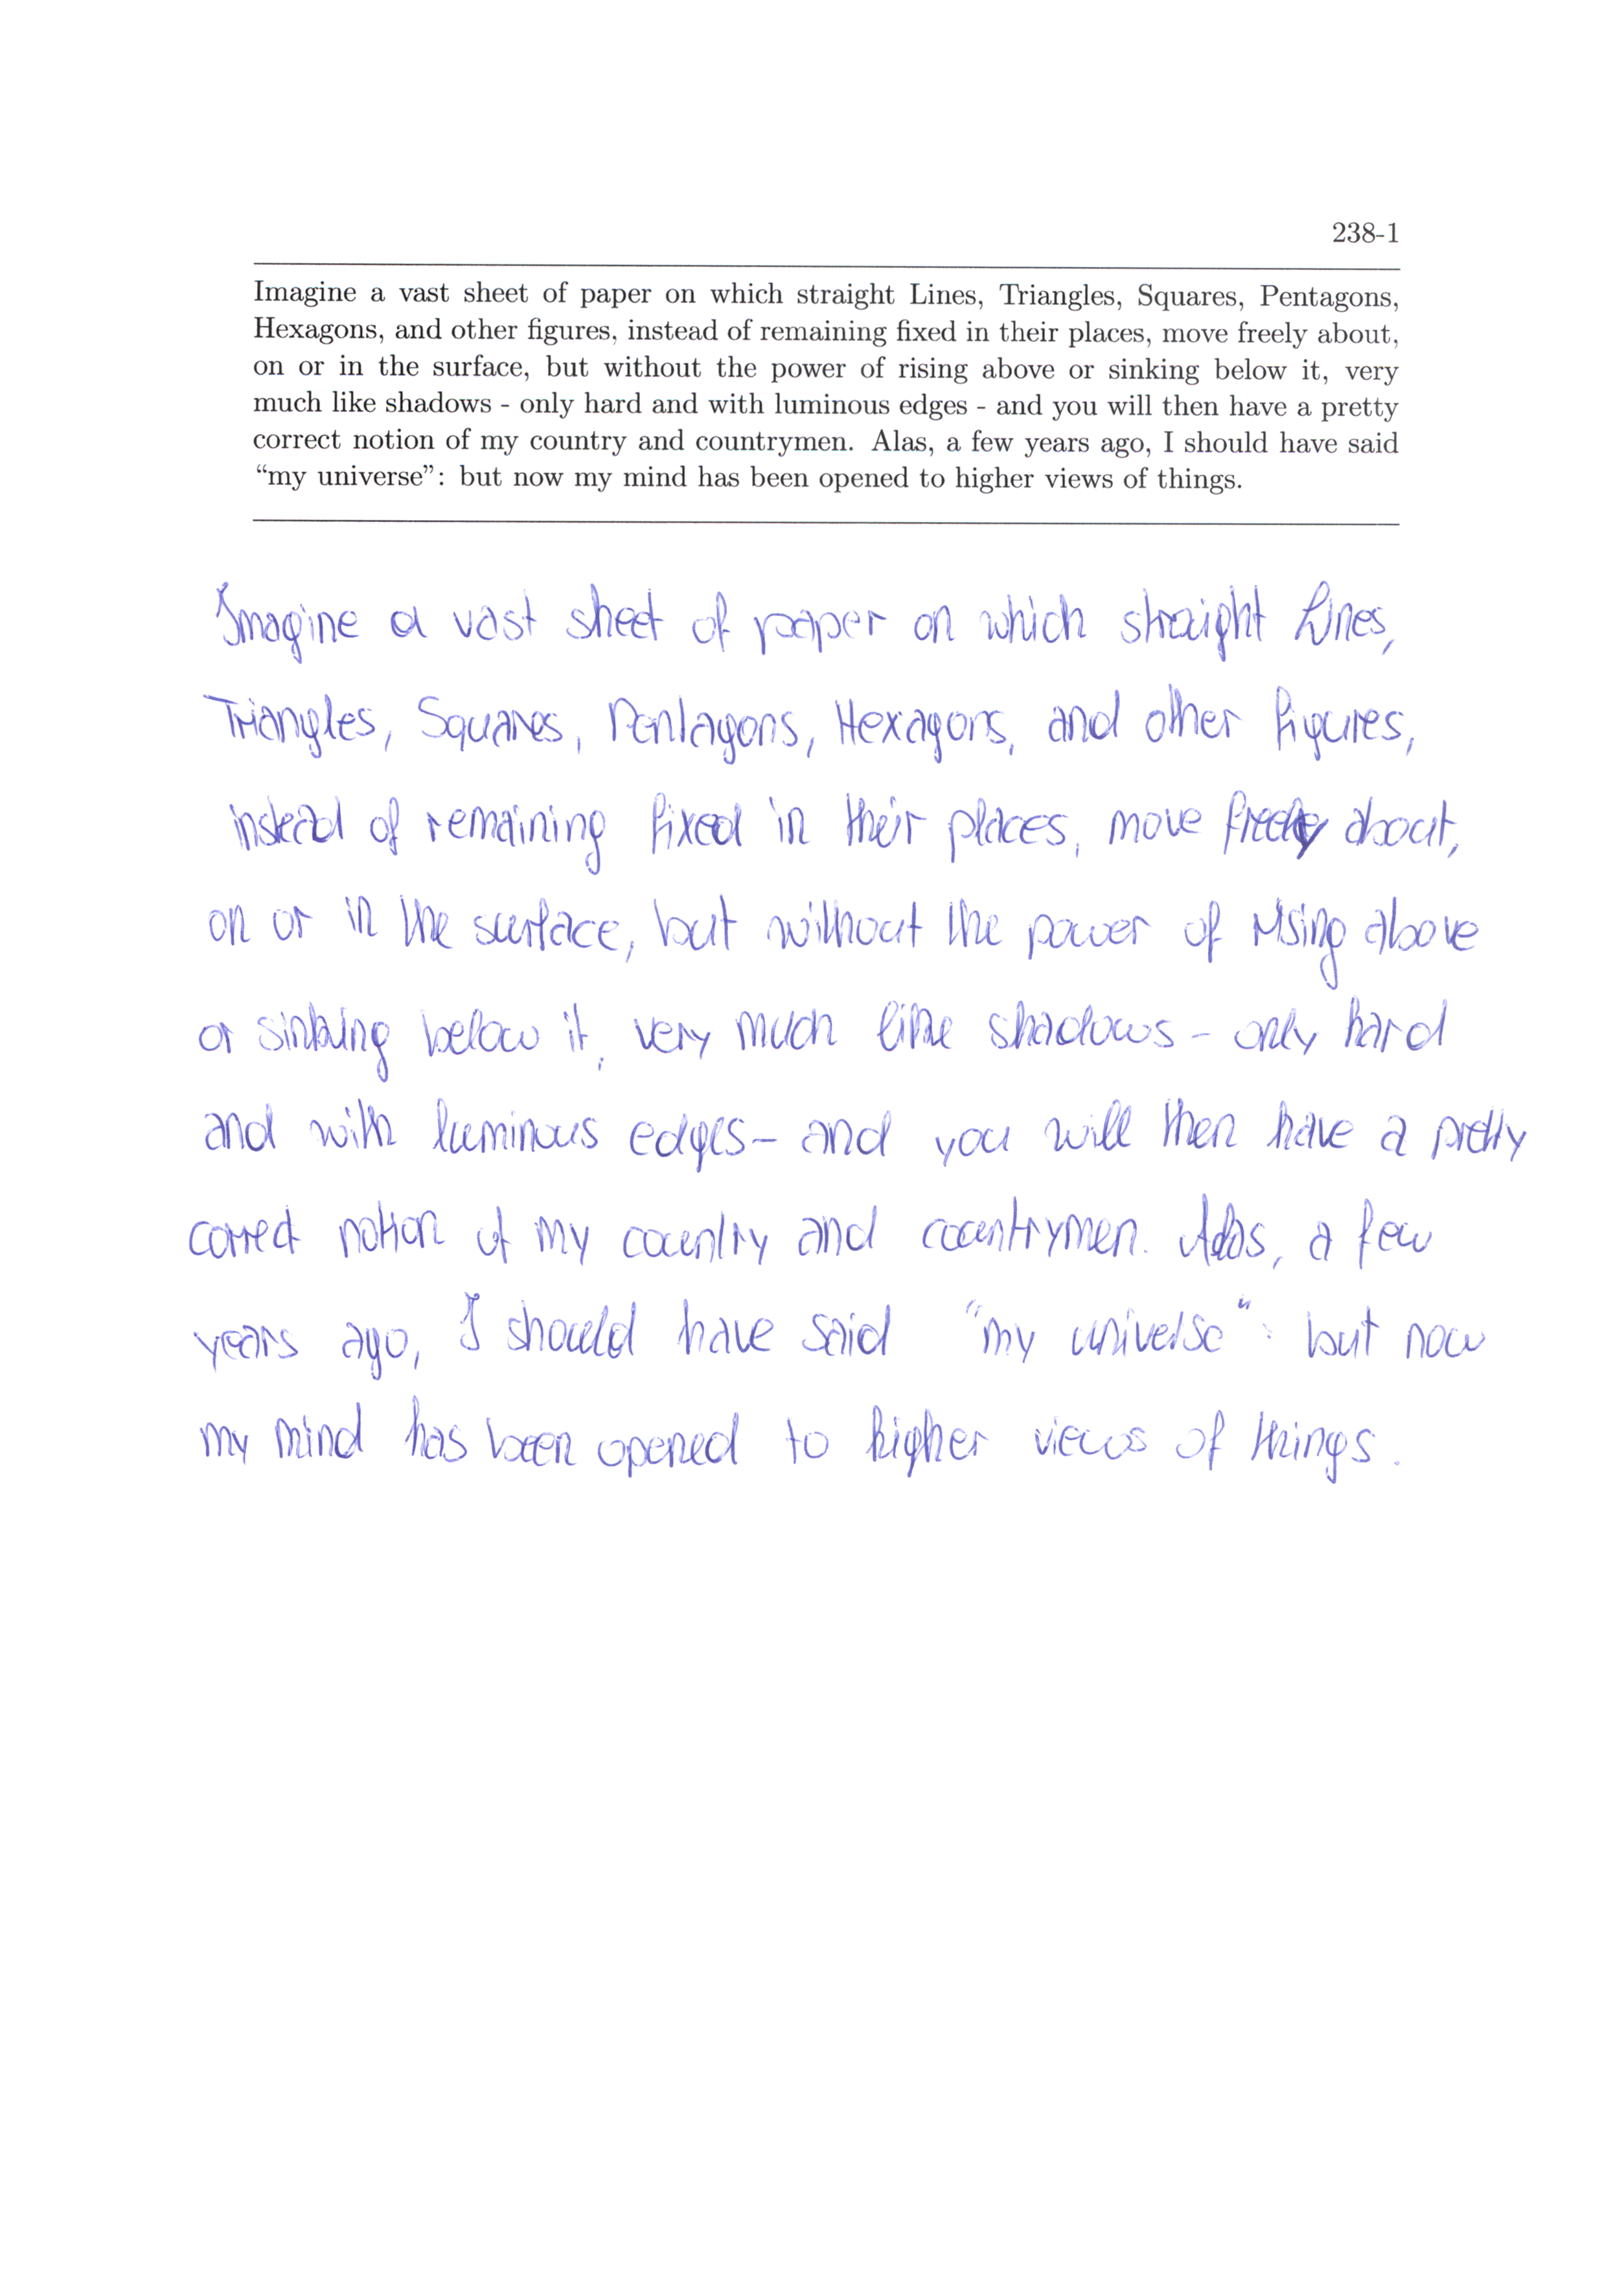 238-1
Imagine a vast sheet of paper on which straight Lines, Triangles, Squares, Pentagons,
Hexagons, and other figures, instead of remaining fixed in their places, move freely about,
on or in the surface, but without the power of rising above or sinking below it, very
much like shadows - only hard and with luminous edges - and you will then have a pretty
correct notion of my country and countrymen. Alas, a few years ago, I should have said
“my universe”: but now my mind has been opened to higher views of things.
Imagine a vast sheet of paper on which straight Lines,
Triangles, Squares, Pentagons, Hexagons, and other figures,
instead of remaining fixed in their places, move freely about,
on or in the surface, but without the power of rising above
or sinking below it, very much like shadows - only hard
and with luminous edges - and you will then have a pretty
correct notion of my country and countrymen. Alas, a few
years ago, I should have said "my universe": but now
my mind has been opened to higher views of things.